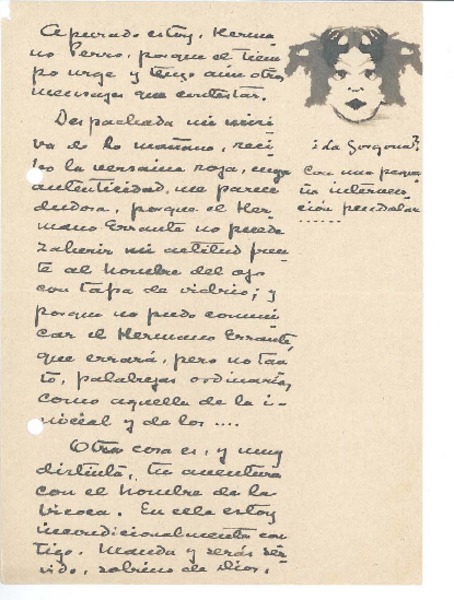 Apurado estoy, Herma
no Perro, porque el tiem
po urge y tengo aún otros
mensajes que contestar.
Despachada mi misi
va de la mañana, reci
bo la versaina roja, cuya
autenticidad, me parece
dudosa, porque el Her
mano Errante no puede
zaherir mi actitud fren
te al hombre del ojo
con tapa de vidrio; y
porque no puedo comuni
car el Hermano Errante,
que errará, pero no tan
to, palabrejas ordinarias
como aquella de la i-
nicial y de los ....
Otra cosa es, y muy
distinta, tu aventura
con el hombre de la
bicoca. En ella estoy
incondicionalmente con
tigo. Manda y serás ser-
vido, sobrino de Dios.
¿La Gorgona?
Con una peque
ña interven
ción pendular
......